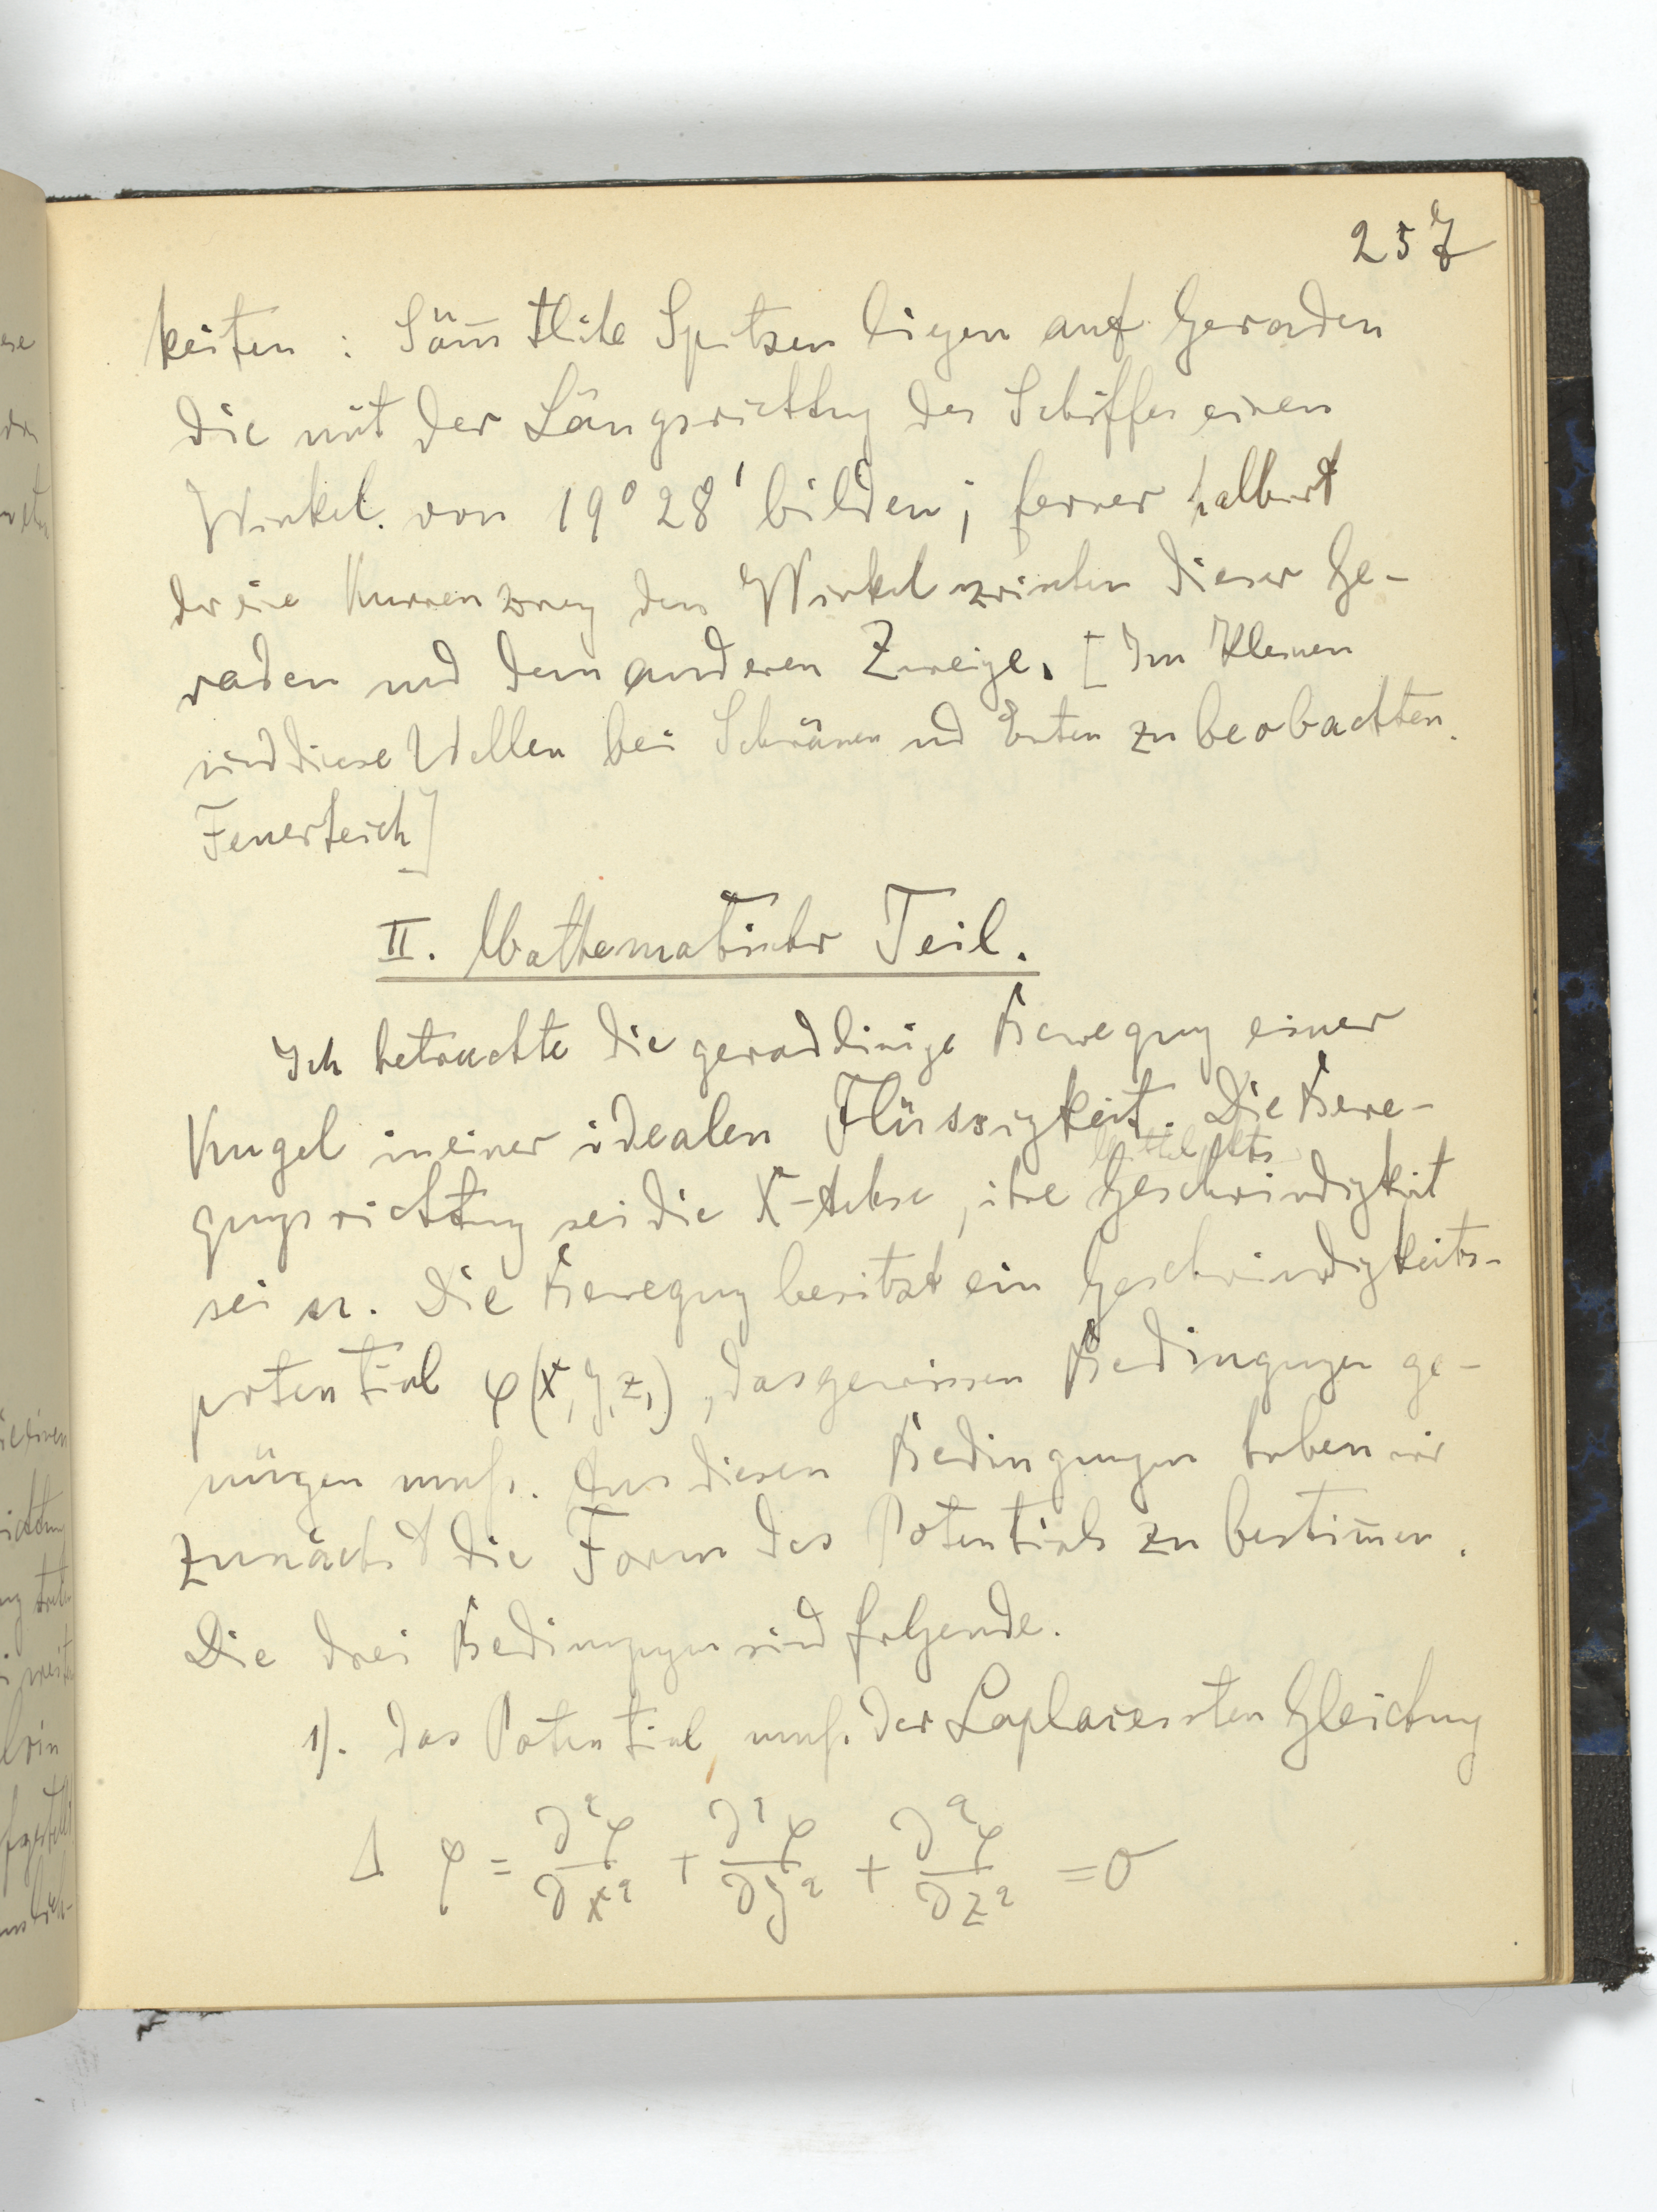 257
keiten : Säm̄tliche Spitzen liegen auf Geraden
die mit der Längsrichtung des Schiffes einen
Winkel von 19° 28' bilden; ferner halbiert
der eine Kurvenzweig den Winkel zwischen dieser Ge-
raden und dem anderen Zweige. [Im Kleinen
sind diese Wellen bei Schwänen und Enten zu beobachten.
Feuerteich]
II. Mathematischer Teil.
Ich betrachte die geradlinige Bewegung einer
Kugel in einer idealen Flüssigkeit. Die Bewe-
gungsrichtung sei die X-Achse, ihre Geschwindigkeit
sei u. Die Bewegung besitzt ein Geschwindigkeits-
potential φ(x, y, z,), das gewissen Bedingungen ge-
nügen muß. Aus diesen Bedingungen haben wir
zunächst die Form des Potentials zu bestim̄en.
Die drei Bedingungen sind folgende.
1). Das Potential muß der Laplaceschen Gleichung
Δ φ = ∂²φ/∂x² + ∂²φ/∂y² + ∂²φ/∂z² = 0